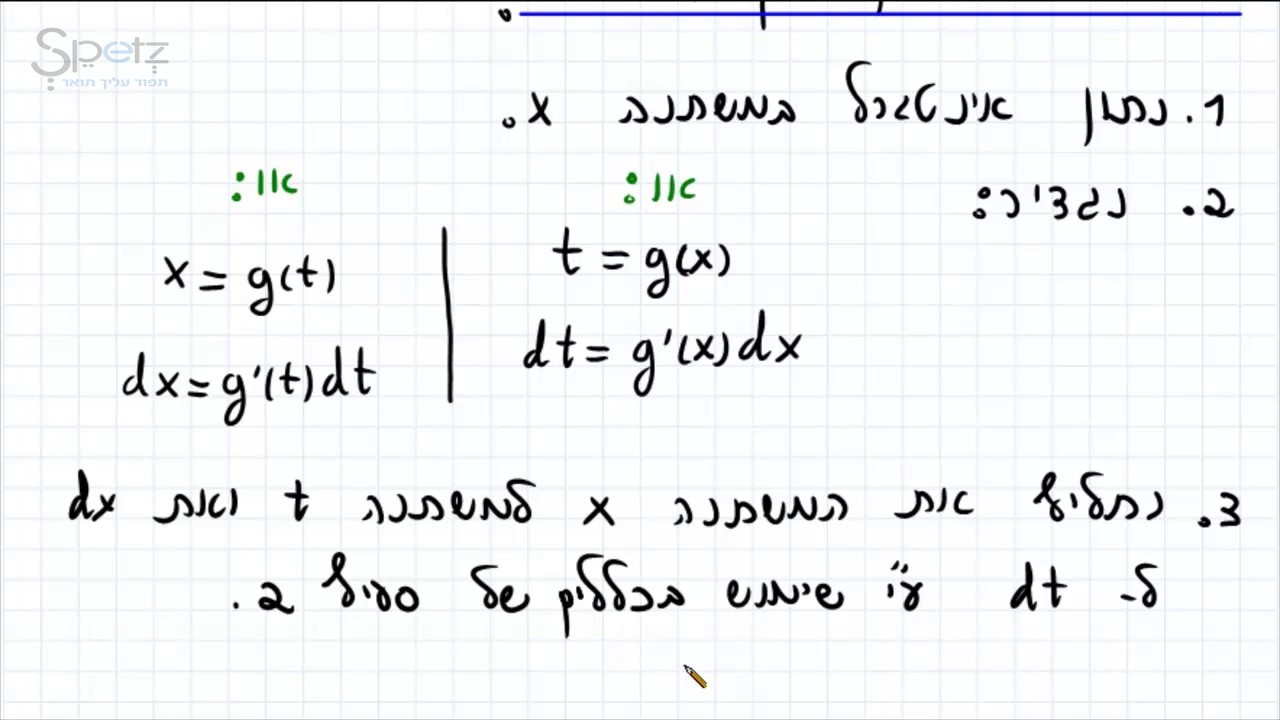 Spetz
תפור עליך תואר
1. נתון אינטגרל במשתנה x.
2. נגדיר:
או:
או:
t = g(x)
x = g(t)
dt = g'(x)dx
dx = g'(t)dt
3. נחליף את המשתנה x למשתנה t ואת dx
ל- dt ע"י שימוש בכללים של סעיף 2.